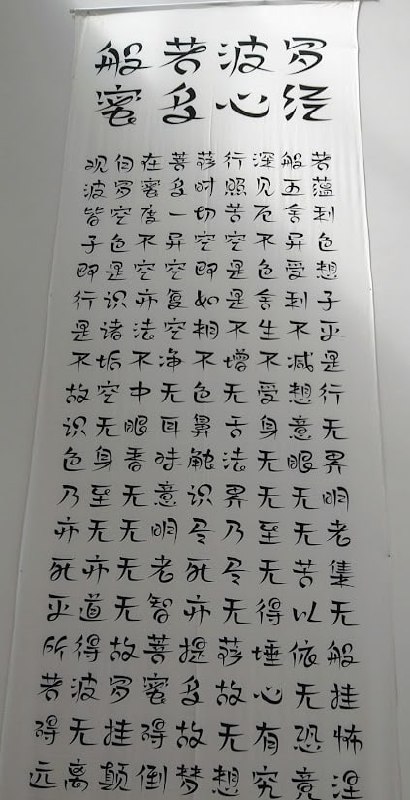 般若波罗
蜜多心经
观自在菩萨行深般若
波罗蜜多时照见五蕴
皆空度一切苦厄舍利
子色不异空空不异色
即是空空即是色受想
行识亦复如是舍利子
是诸法空相不生不灭
不垢不净不增不减是
故空中无色无受想行
识无眼耳鼻舌身意无
色身香味触法无眼界
乃至无意识界无无明
亦无无明尽乃至无老
死亦无老死尽无苦集
灭道无智亦无得以无
所得故菩提萨埵依般
若波罗蜜多故心无挂
碍无挂碍故无有恐怖
远离颠倒梦想究竟涅